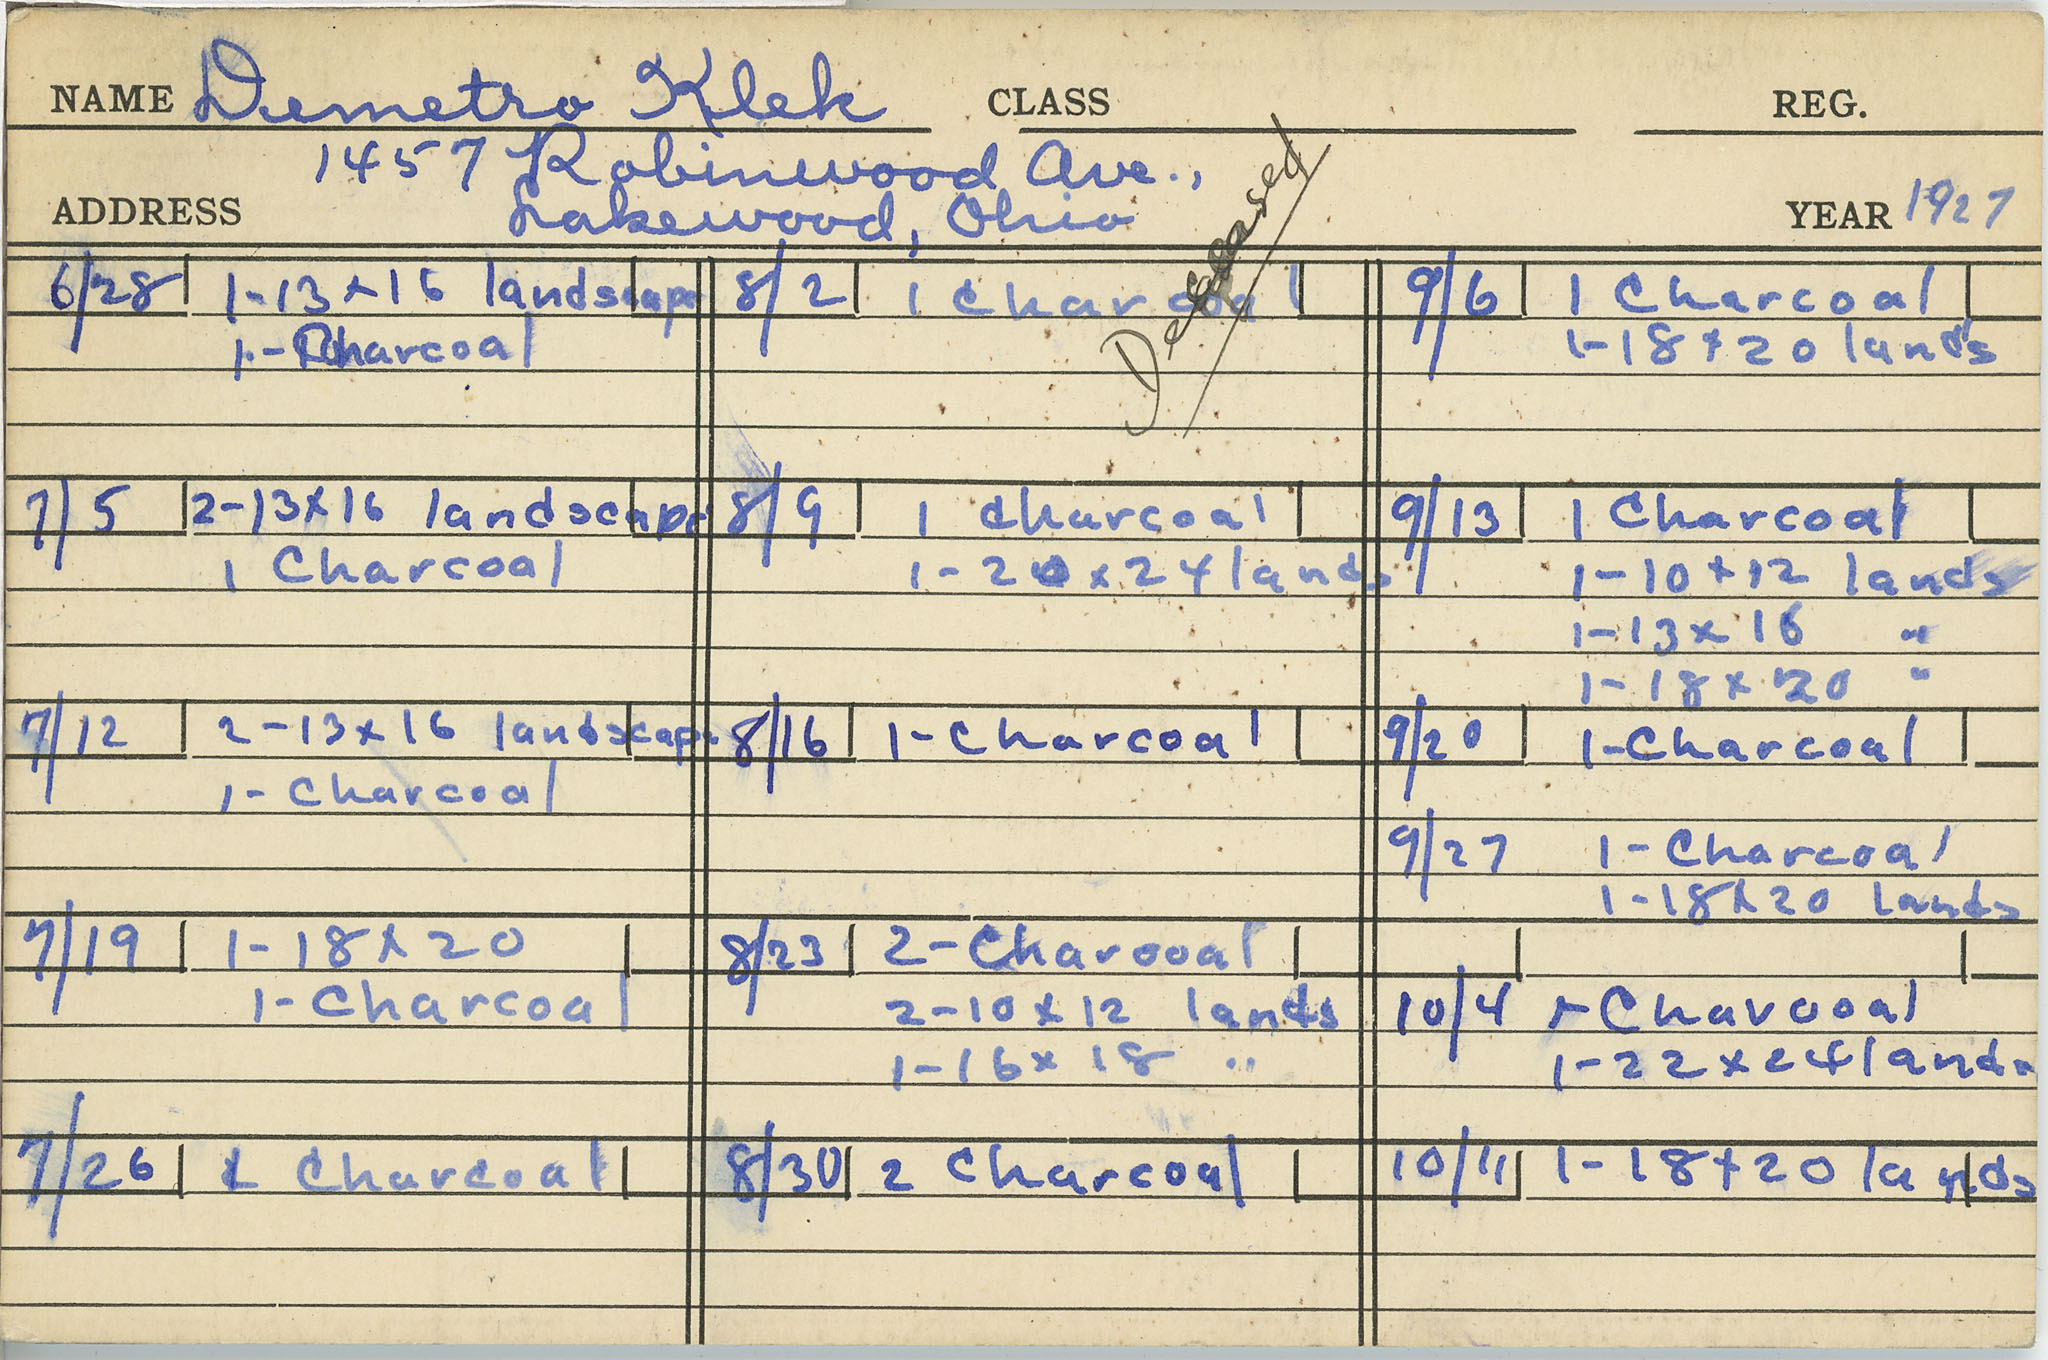 NAME Demetro Klek CLASS REG.
1457 Robinwood Ave.,
ADDRESS Lakewood, Ohio YEAR 1927
Deceased
6/28 1-13x16 landscape
1-Charcoal
7/5 2-13x16 landscape
1 Charcoal
7/12 2-13x16 landscape
1-Charcoal
7/19 1-18x20
1-Charcoal
7/26 Charcoal
8/2 1 Charcoal
8/9 1 Charcoal
1-20x24 lands
8/16 1-Charcoal
8/23 2-Charcoal
2-10x12 lands
1-16x18 "
8/30 2 Charcoal
9/6 1 Charcoal
1-18x20 lands
9/13 1 Charcoal
1-10x12 lands
1-13x16 "
1-18x20 "
9/20 1-Charcoal
9/27 1-Charcoal
1-18x20 lands
10/4 1-Charcoal
1-22x24 lands
10/11 1-18x20 lands